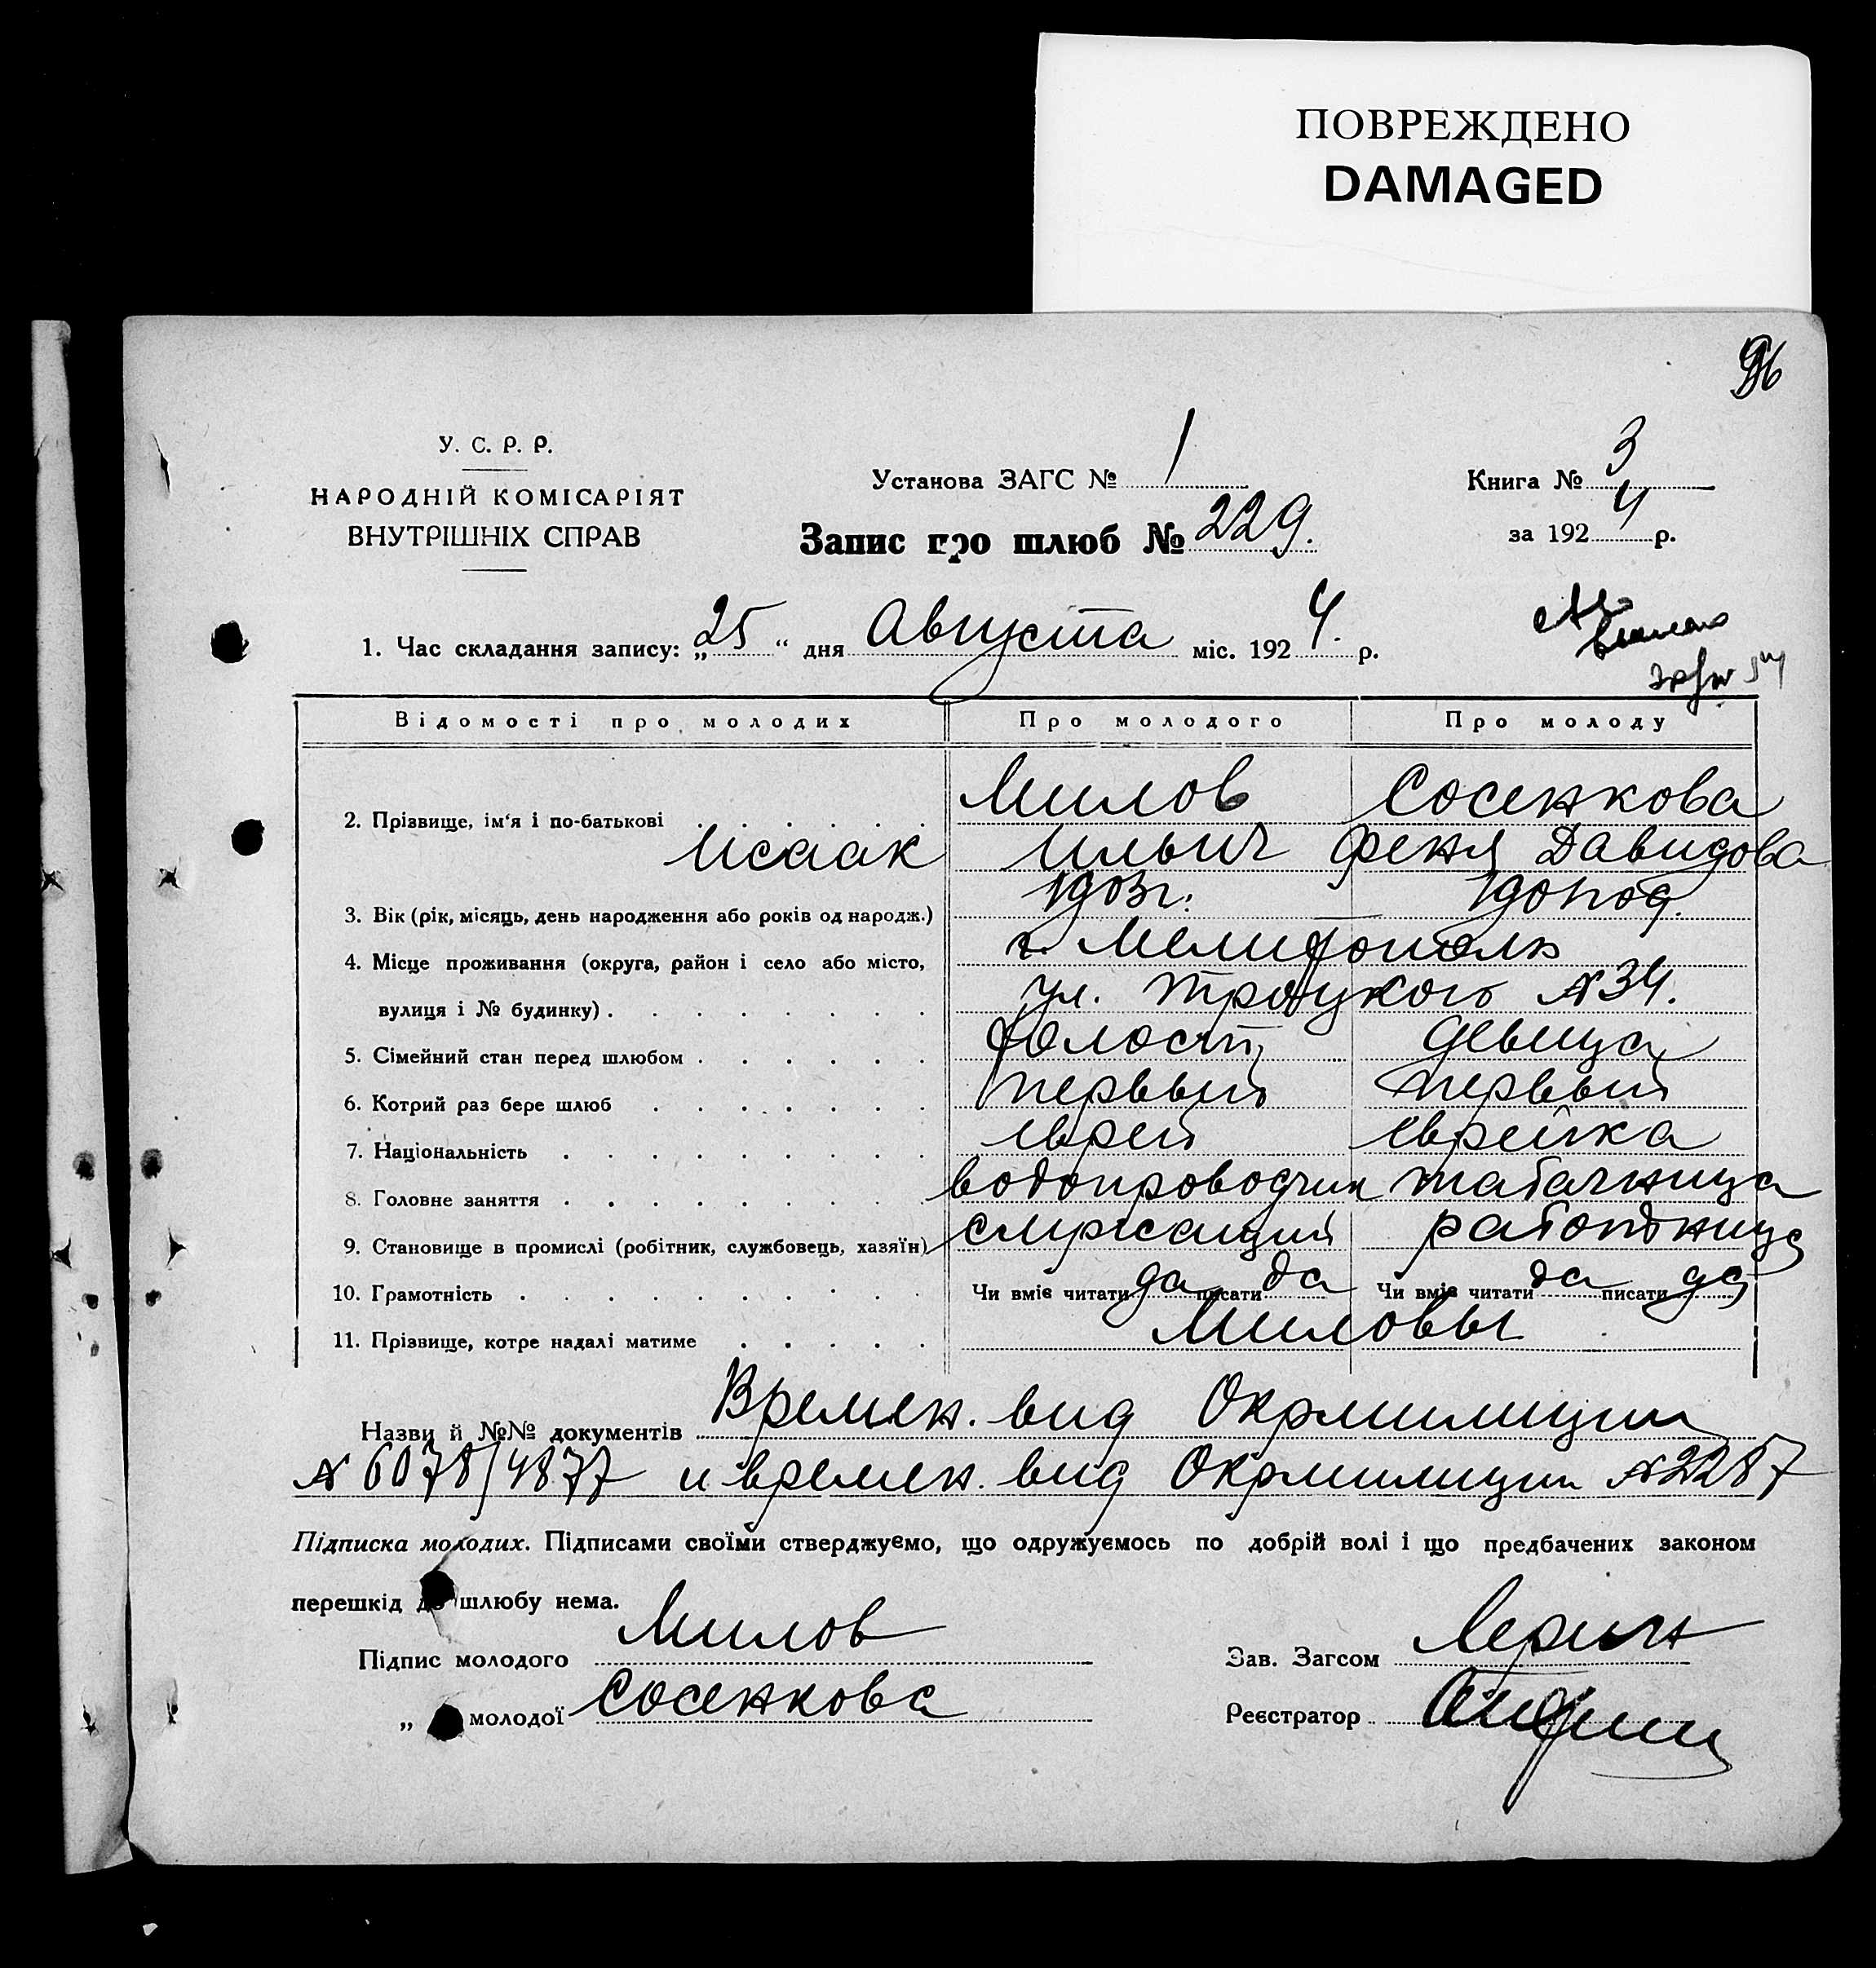 ПОВРЕЖДЕНО
DAMAGED
96
У. С. Р. Р.
НАРОДНІЙ КОМІСАРІЯТ
ВНУТРІШНІХ СПРАВ
Установа ЗАГС № 1
Запис про шлюб № 229.
Книга № 3
за 1924 р.
1. Час складання запису: „25“ дня Августа міс. 1924. р.
Відомості про молодих Про молодого Про молоду
2. Прізвище, ім'я і по-батькові Милов Сосенкова
Исаак Ильич Феня Давидова
3. Вік (рік, місяць, день народження або років од народж.) 1903г.
4. Місце проживання (округа, район і село або місто, г. Мелитополь
вулиця і № будинку) ул. Троцкого №34.
5. Сімейний стан перед шлюбом холост девица
6. Котрий раз бере шлюб первый первый
7. Національність еврей еврейка
8. Головне заняття водопроводчик табачница
9. Становище в промислі (робітник, службовець, хазяїн) служащий работница
10. Грамотність Чи вміє читати да писати да Чи вміє читати да писати да
11. Прізвище, котре надалі матиме Миловы
Назви й №№ документів Времен. вид Окрмилиции
№6078/4877 и времен. вид Окрмилиции №2287
Підписка молодих. Підписами своїми стверджуємо, що одружуємось по добрій волі і що предбачених законом
перешкід до шлюбу нема.
Підпис молодого Милов
Зав. Загсом
„ молодої Сосенкова
Реєстратор